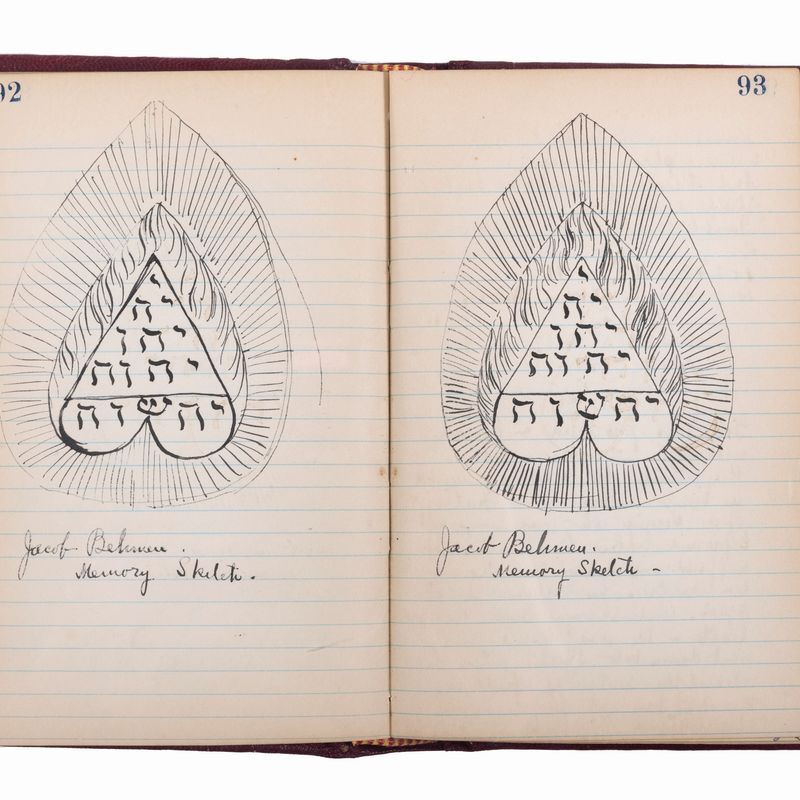 92
י
יה
יהו
יהוה
יהשוה
Jacob Behmen.
Memory Sketch.
93
י
יה
יהו
יהוה
יהשוה
Jacob Behmen.
Memory Sketch -